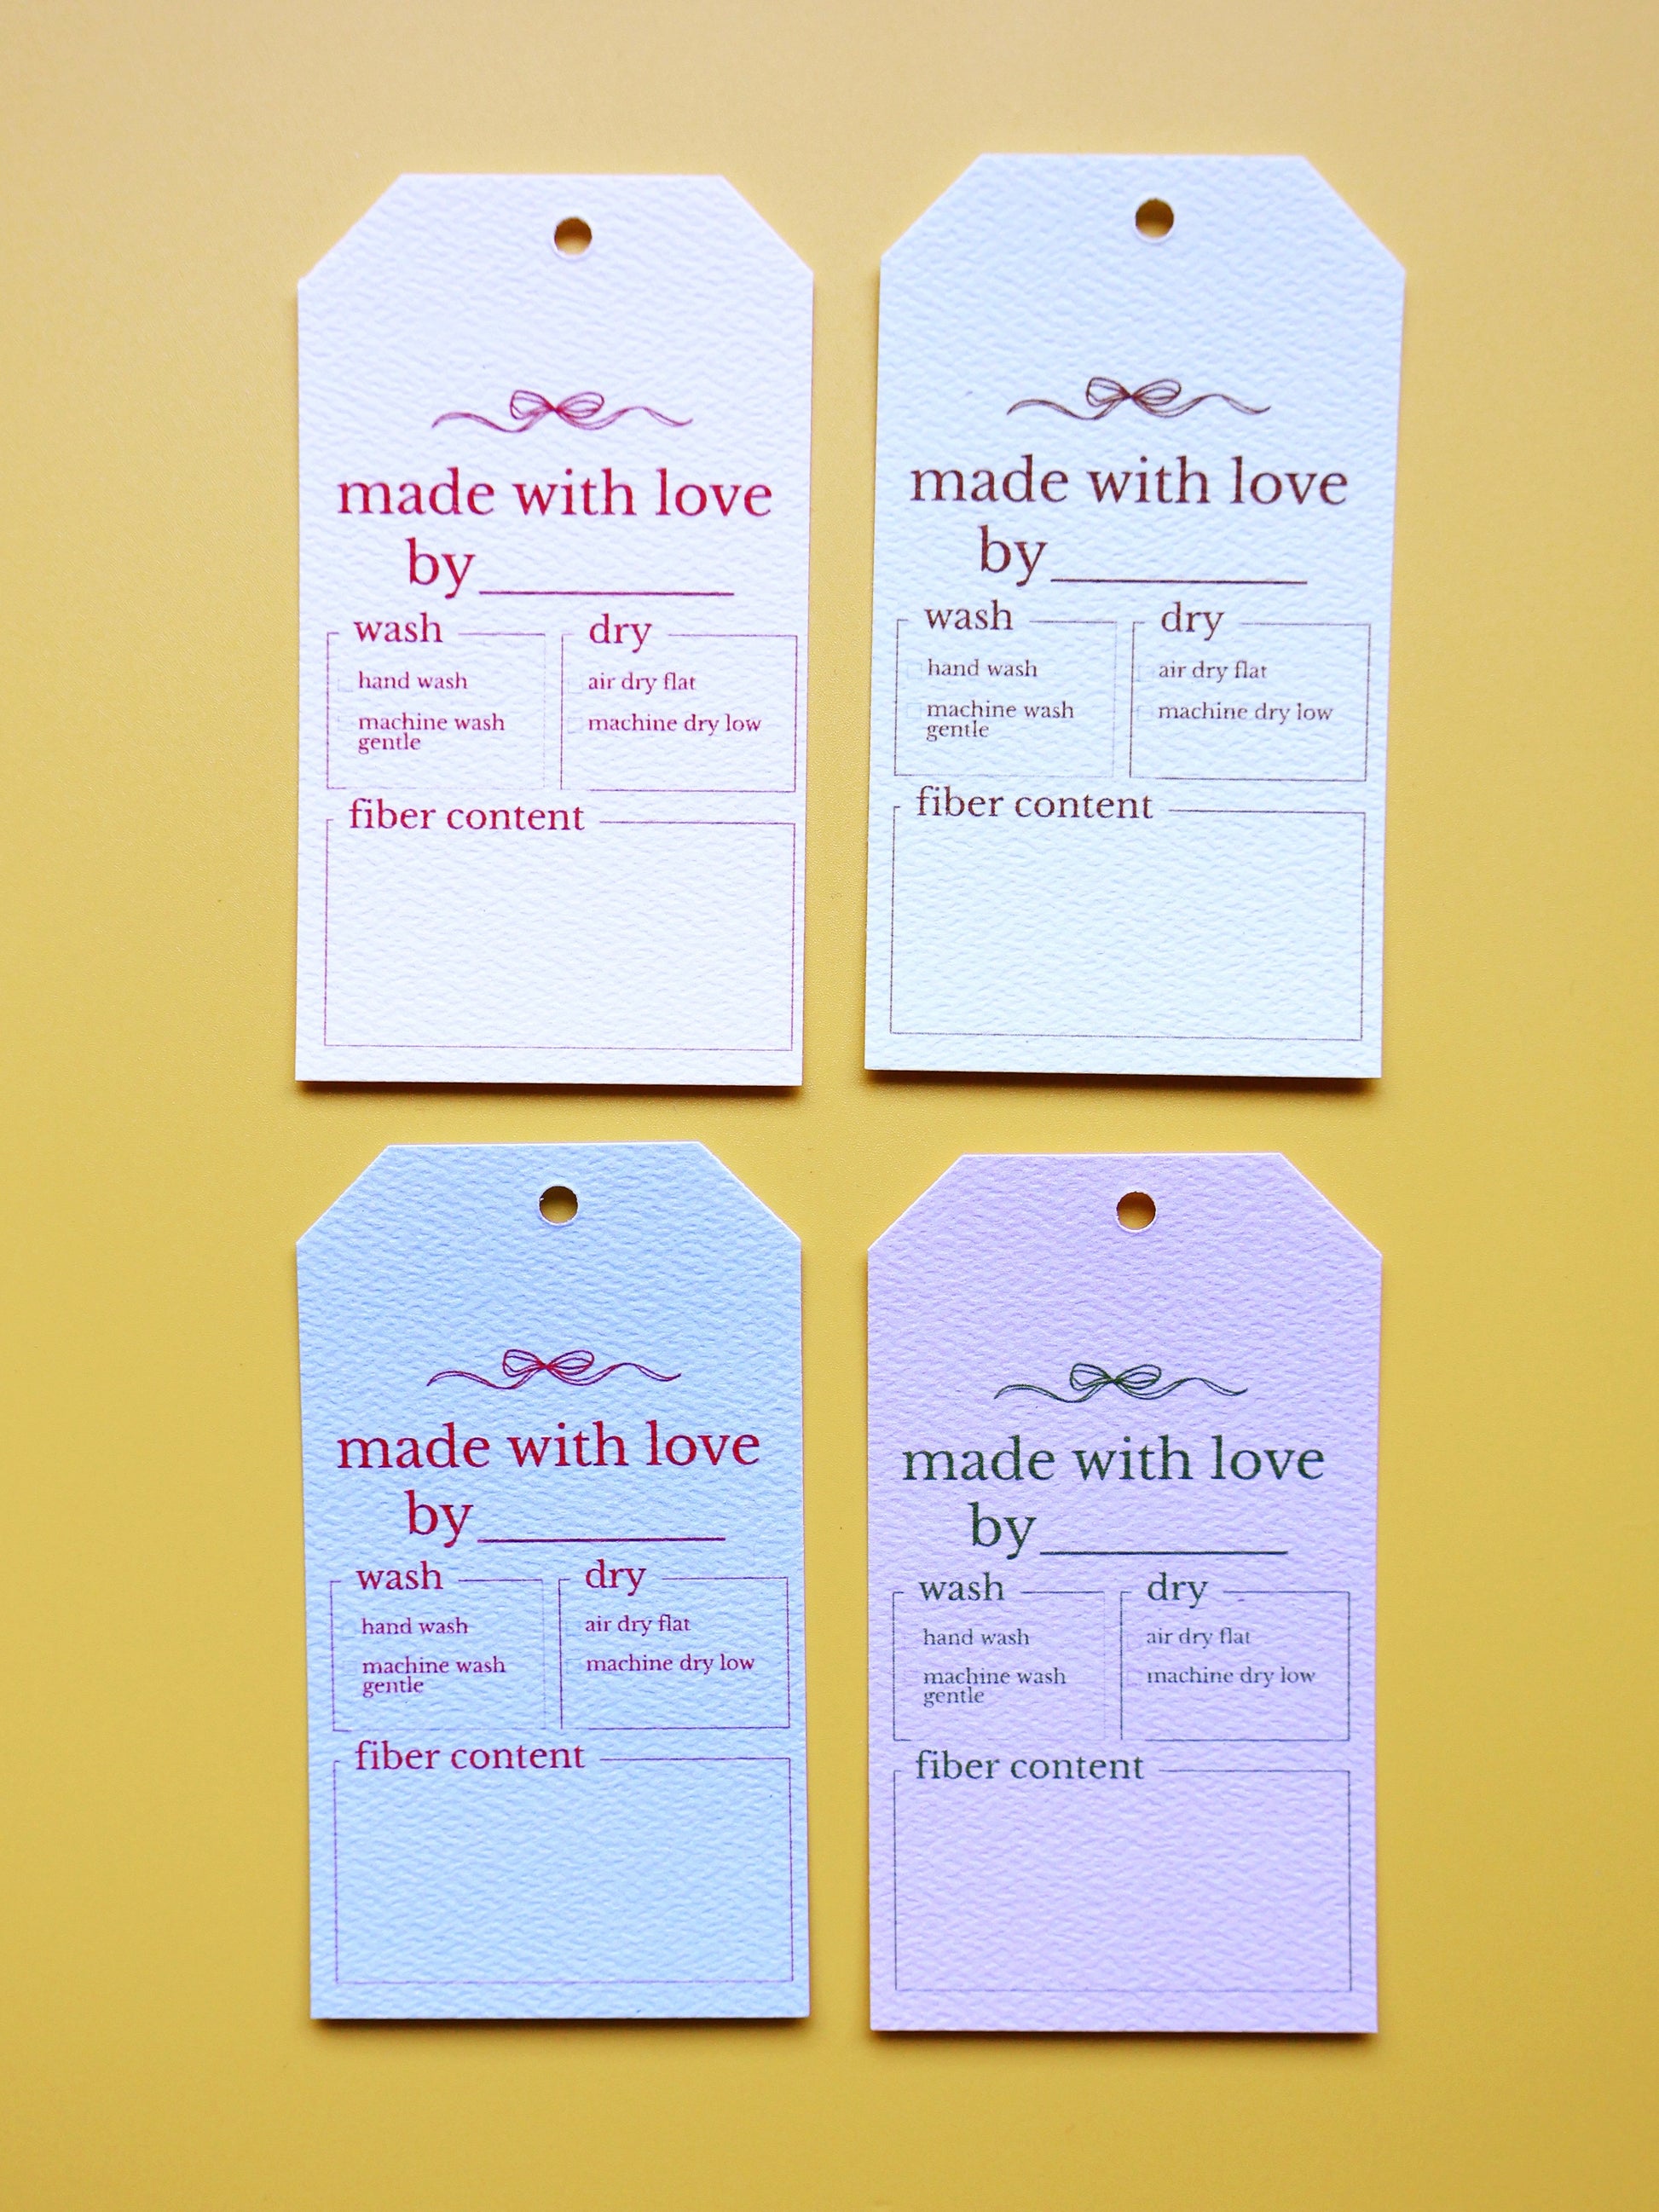 made with love
by
wash
hand wash
machine wash
gentle
dry
air dry flat
machine dry low
fiber content
made with love
by
wash
hand wash
machine wash
gentle
dry
air dry flat
machine dry low
fiber content
made with love
by
wash
hand wash
machine wash
gentle
dry
air dry flat
machine dry low
fiber content
made with love
by
wash
hand wash
machine wash
gentle
dry
air dry flat
machine dry low
fiber content